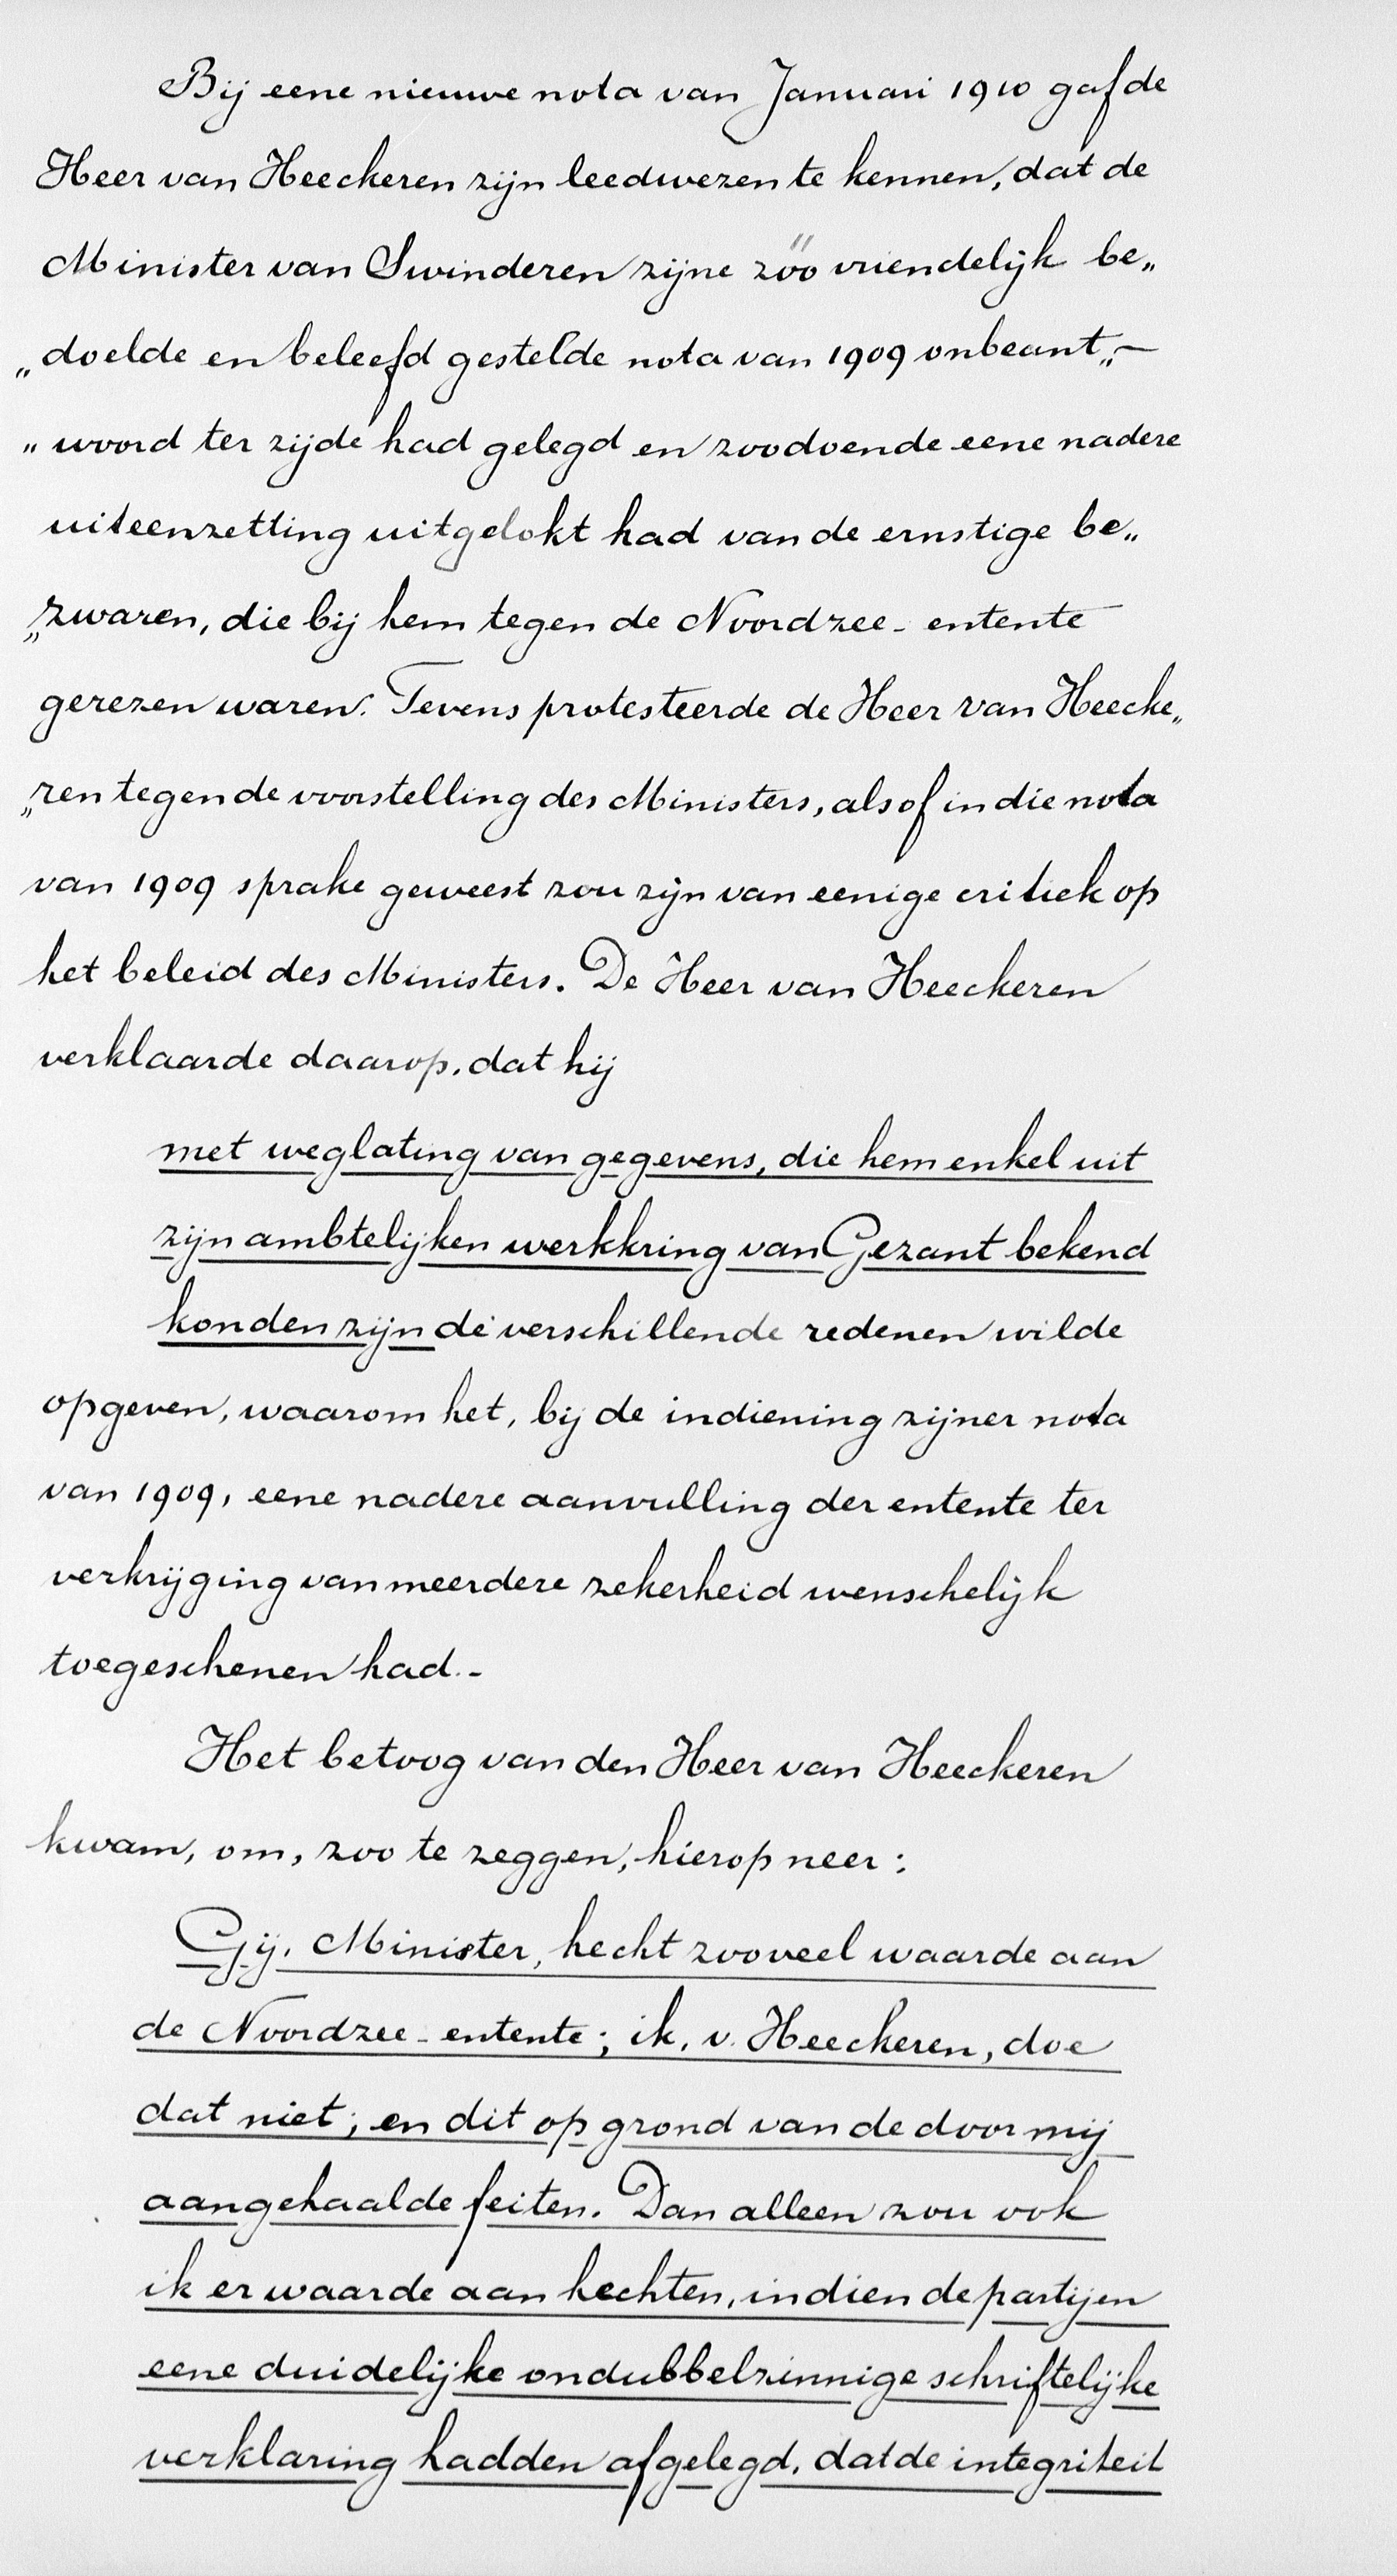 Bij eene nieuwe nota van Januari 1910 gaf de
Heer van Heeckeren zijn leedwezen te kennen, dat de
Minister van Swinderen zijne zóó vriendelijk be„
„doelde en beleefd gestelde nota van 1909 onbeant„-
„woord ter zijde had gelegd en zoodoende eene nadere
uiteenzetting uitgelokt had van de ernstige be„
„zwaren, die bij hem tegen de Noordzee-entente
gerezen waren. Tevens protesteerde de Heer van Heecke„
„ren tegen de voorstelling des Ministers, alsof in die nota
van 1909 sprake geweest zou zijn van eenige critiek op
het beleid des Ministers. De Heer van Heeckeren
verklaarde daarop, dat hij
met weglating van gegevens, die hem enkel uit
zijn ambtelijken werkkring van Gezant bekend
konden zijn de verschillende redenen wilde
opgeven, waarom het, bij de indiening zijner nota
van 1909, eene nadere aanvulling der entente ter
verkrijging van meerdere zekerheid wenschelijk
toegeschenen had.-
Het betoog van den Heer van Heeckeren
kwam, om, zoo te zeggen, hierop neer:
Gij, Minister, hecht zooveel waarde aan
de Noordzee-entente; ik, v. Heeckeren, doe
dat niet; en dit op grond van de door mij
aangehaalde feiten. Dan alleen zou ook
ik er waarde aan hechten, indien de partijen
eene duidelijke ondubbelzinnige schriftelijke
verklaring hadden afgelegd, dat de integriteit